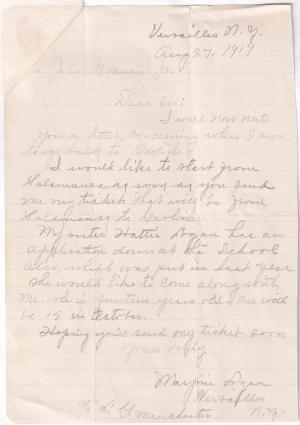 Versailles N.Y.
Aug 27, 1917
Mr. John Francis, Jr.
Dear Sir:
I will now write
you a letter, concerning when I am
to go back to Carlisle.
I would like to start from
Salamanca, as soon as you send
me my ticket. That will be from
Salamanca to Carlisle.
My sister Hattie Logan has an
application down at the School
also, which was put in last year
She would like to come along with
me. She is fourteen years old & will
be 15 in October.
Hoping you'll send my ticket soon
Yours truly
Marjorie Logan
Versailles
N.Y.
c/o Manchester